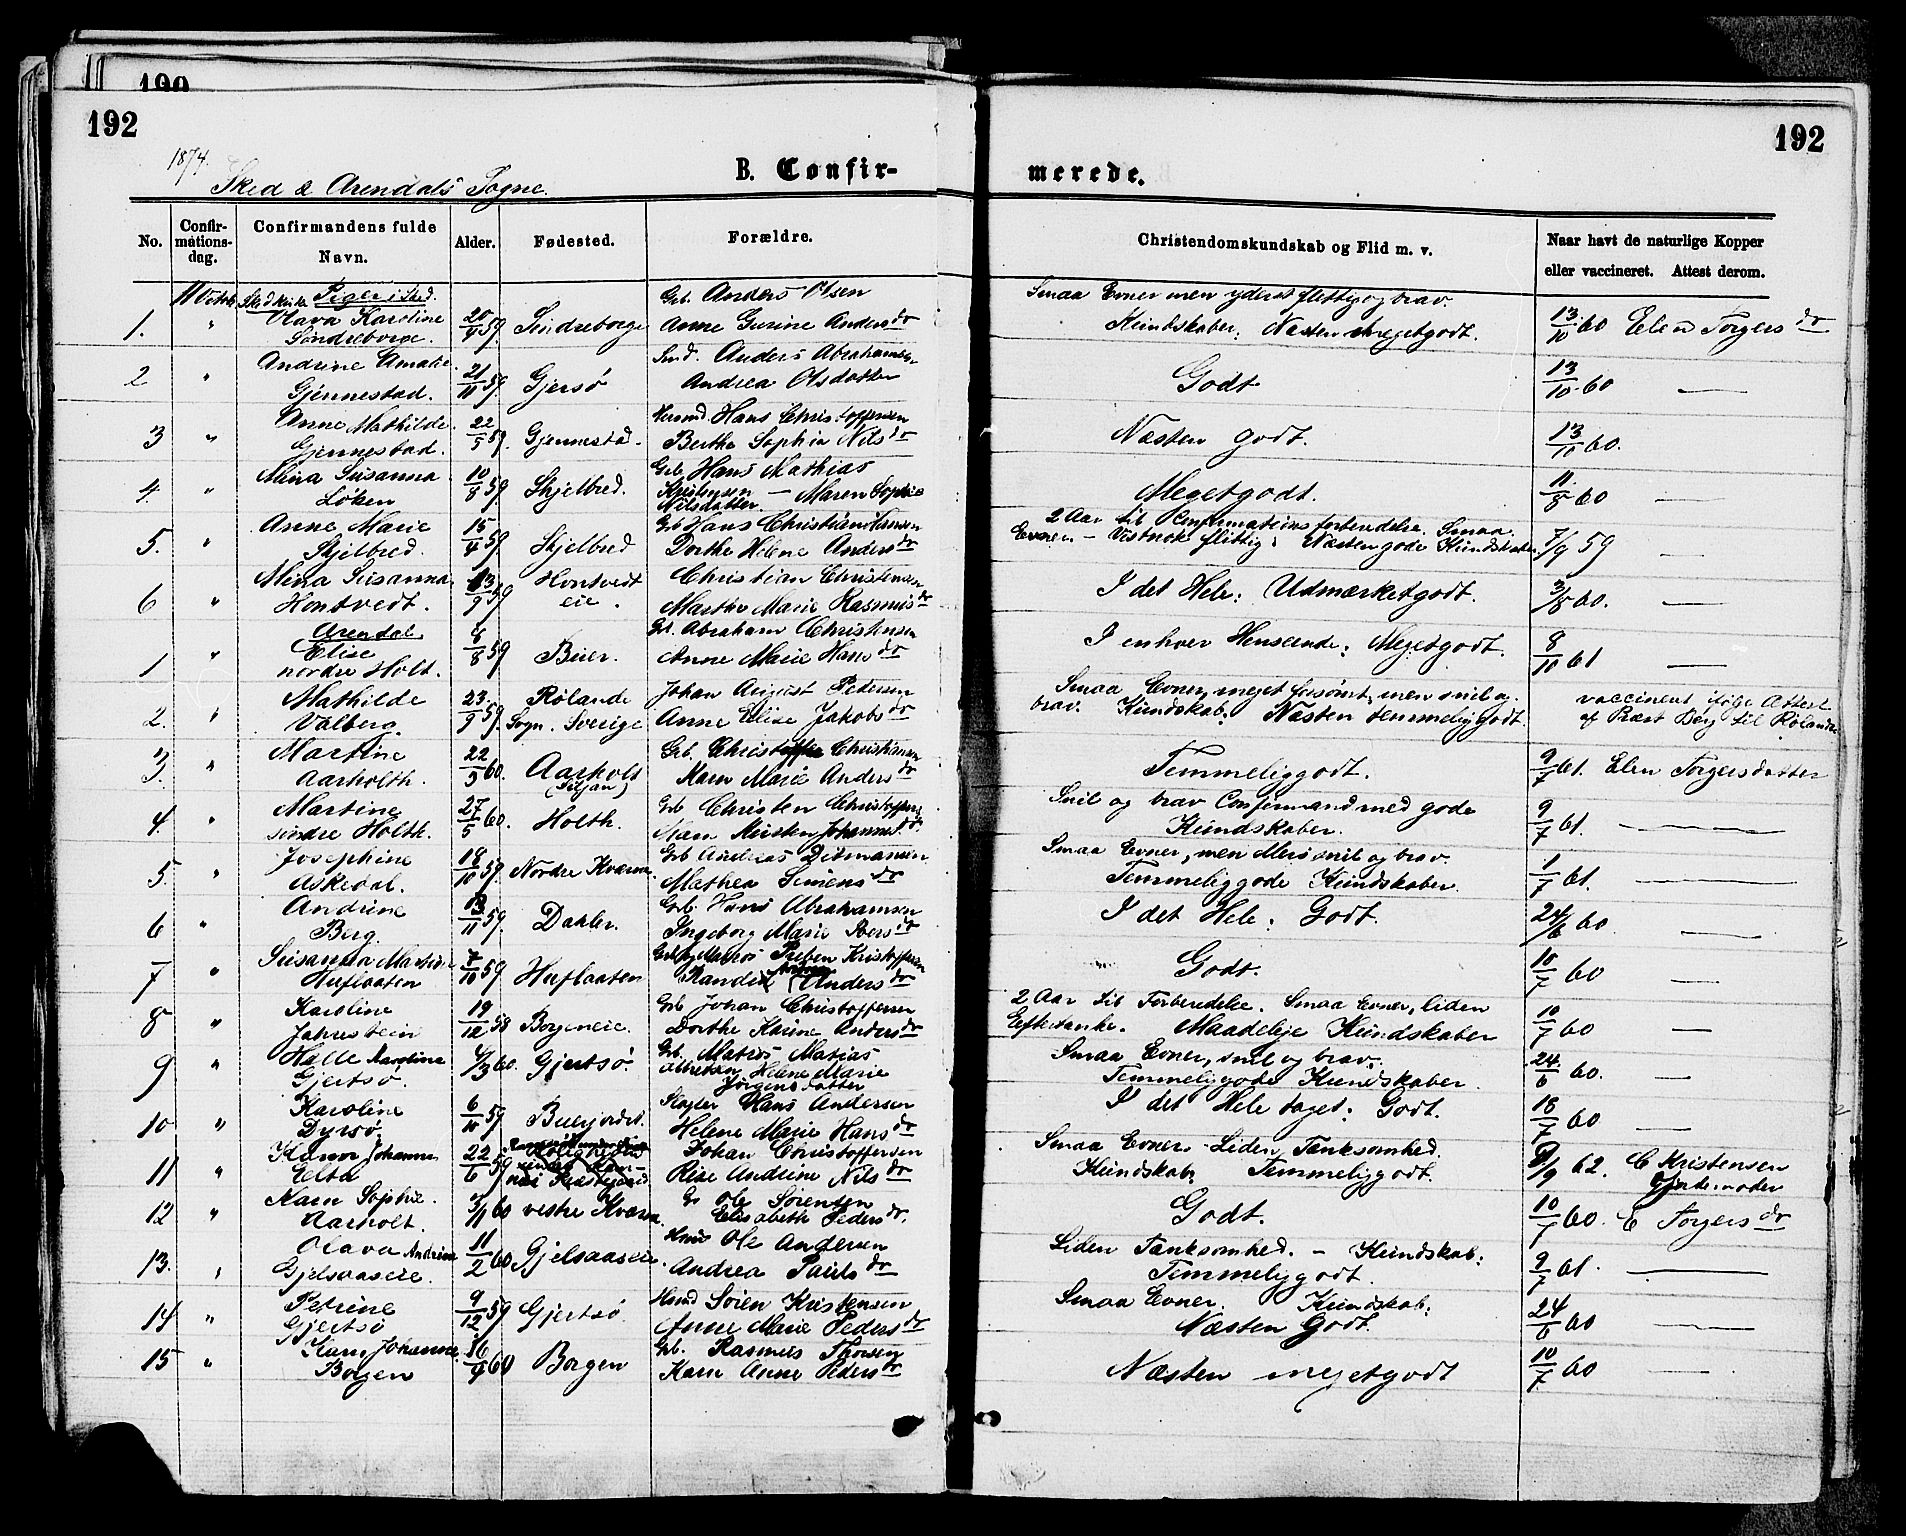 190
192
192
1874.
Sked & Arendals Sogne.
B. Confirmerede.
No. Confirmations-dag. Confirmandens fulde Navn. Alder. Fødested. Forældre. Christendomskundskab og Flid m. v. Naar havt de naturlige Kopper eller vaccineret. Attest derom.
11 Octob Sked Kirke Piger i Sked.
1. " Olava Karoline Søndreborge 20/9 59. Søndreborge Grb. Anders Olsen Anne Gurine Anders dr Smaa Evner men yderst flittig og brav. Kundskaber: Næsten meget godt. 13/10 60 Elen Torgers dr
2 " Andrine Amalie Gjennestad. 21/11 59. Gjersø Smd. Anders Abrahamsen Andrea Olsdatter Godt 13/10 60 —
3 " Anne Mathilde Gjennestad. 22/5 59. Gjennestad. Huusmd Hans Christoffersen Berthe Sophia Nils dr Næsten godt. 13/10 60.
4. " Mina Susanna Løken 10/8 59. Skjelbred. Grb Hans Mathias Kristensen — Maren Sophie Nilsdatter Meget godt. 11/8 60 —
5. " Anne Marie Skjelbred. 15/4 59. Skjelbred Grb Hans Christian Hansen Dorthe Helene Anders dr 2 Aar til Confirmationsforberedelse. Smaa Evner – Vistnok flittig: Næsten gode Kundskaber 7/9 59 —
6 " Mina Susanna Hontvedt. 13/9 59 Hontvedt eie. Christian Christensen Marthe Marie Rasmus dr I det Hele: Udmærket godt. 3/8 60. —
Arendal.
1 " Elise nordre Holt. 8/8 59. Buer. Grb. Abraham Christensen Anne Marie Hans dr I enhver Henseende: Meget godt. 8/10 61 —
2. " Mathilde Valberg. 23/9 59. Rølande Sogn. Sverige Johan August Pedersen Anne Elise Jakobs dr Smaa Evner, meget forsømt, men snil og brav. Kundskab: Næsten temmelig godt. vaccineret ifølge Attest af Præst Berg til Rølanda
3. " Martine Aarholth. 22/5 60. Aarholt (Siljan) Grb. Christoffer Christiansen Karn Marie Anders dr Temmelig godt. 9/7 61. Elen Torgersdatter
4. " Martine søndre Holth. 27/5 60. Holth. Grb Christen Christoffersen Maren Kirsten Johannes dr. Snil og brav Confirmand med gode Kundskaber. 9/7 61. —
5. " Josephine Askedal. 18/10 59. Nordre Kværne. Grb Andreas Ditmansen Mathea Simens dr Smaa Evner, men Mere snil og brav. Temmelig gode Kundskaber. 1/7 61. —
6 " Andrine Berg. 13/11 59. Dahler. Grb. Hans Abrahamsen Ingeborg Marie Ivers dr I det Hele: Godt. 24/6 60 —
7 " Susanna Martine Huflaaten 7/10 59. Huflaaten Preben Kristoffersen Randi Anders dr Godt. 10/7 60 —
8 " Karoline 19/12 58 Borgeneie. Grb Johan Christoffersen Dorthe Karine Anders dr 2 Aar til Forberedelse. Smaa Evner, liden Eftertanke. Maadelige Kundskaber 10/7 60 —
9 " Halle Karoline Gjertsø. 4/3 60. Gjertsø. Grb. Mathis Matias Helene Marie Jørgensdatter Smaa Evner, snil og brav. Temmelig gode Kundskaber. 24/6 60. —
10 " Karoline Dyrsø. 6/10 59. Buerjordet. Hans Andersen Helene Marie Hans dr I det Hele taget: Godt. 18/7 60 —
11 " Johanne 22/6 59 Johan Christoffersen Rise Andrine Nils dr Smaa Evner. Liden Tænksomhed. Kundskab: Temmelig godt. 8/9 62. C Kristensen Gjordemoder
12 " Karn Sophie Aarholt. 3/11 60 vestre Kværne Gr Ole Sørensen Elisabeth Peders dr. Godt. 10/7 60. E Torgers dr
13. " Olava Andrine Gjelsaaseie. 11/2 60 Gjelsaaseie. Hmd Ole Andersen Andrea Pauls dr Liden Tænksomhed. – Kundskab: Temmelig godt. 9/7 61. —
14 " Petrine Gjertsø 9/12 59 Gjertsø Hmd Søren Kristensen Anne Marie Peders dr Smaa Evner. Kundskab: Næsten Godt. 24/6 60 —
15 " Karn Johanne Borgen 16/9 60 Borgen Grb. Rasmus Thorsen Karn Anne Peders dr Næsten meget godt 10/7 60 —